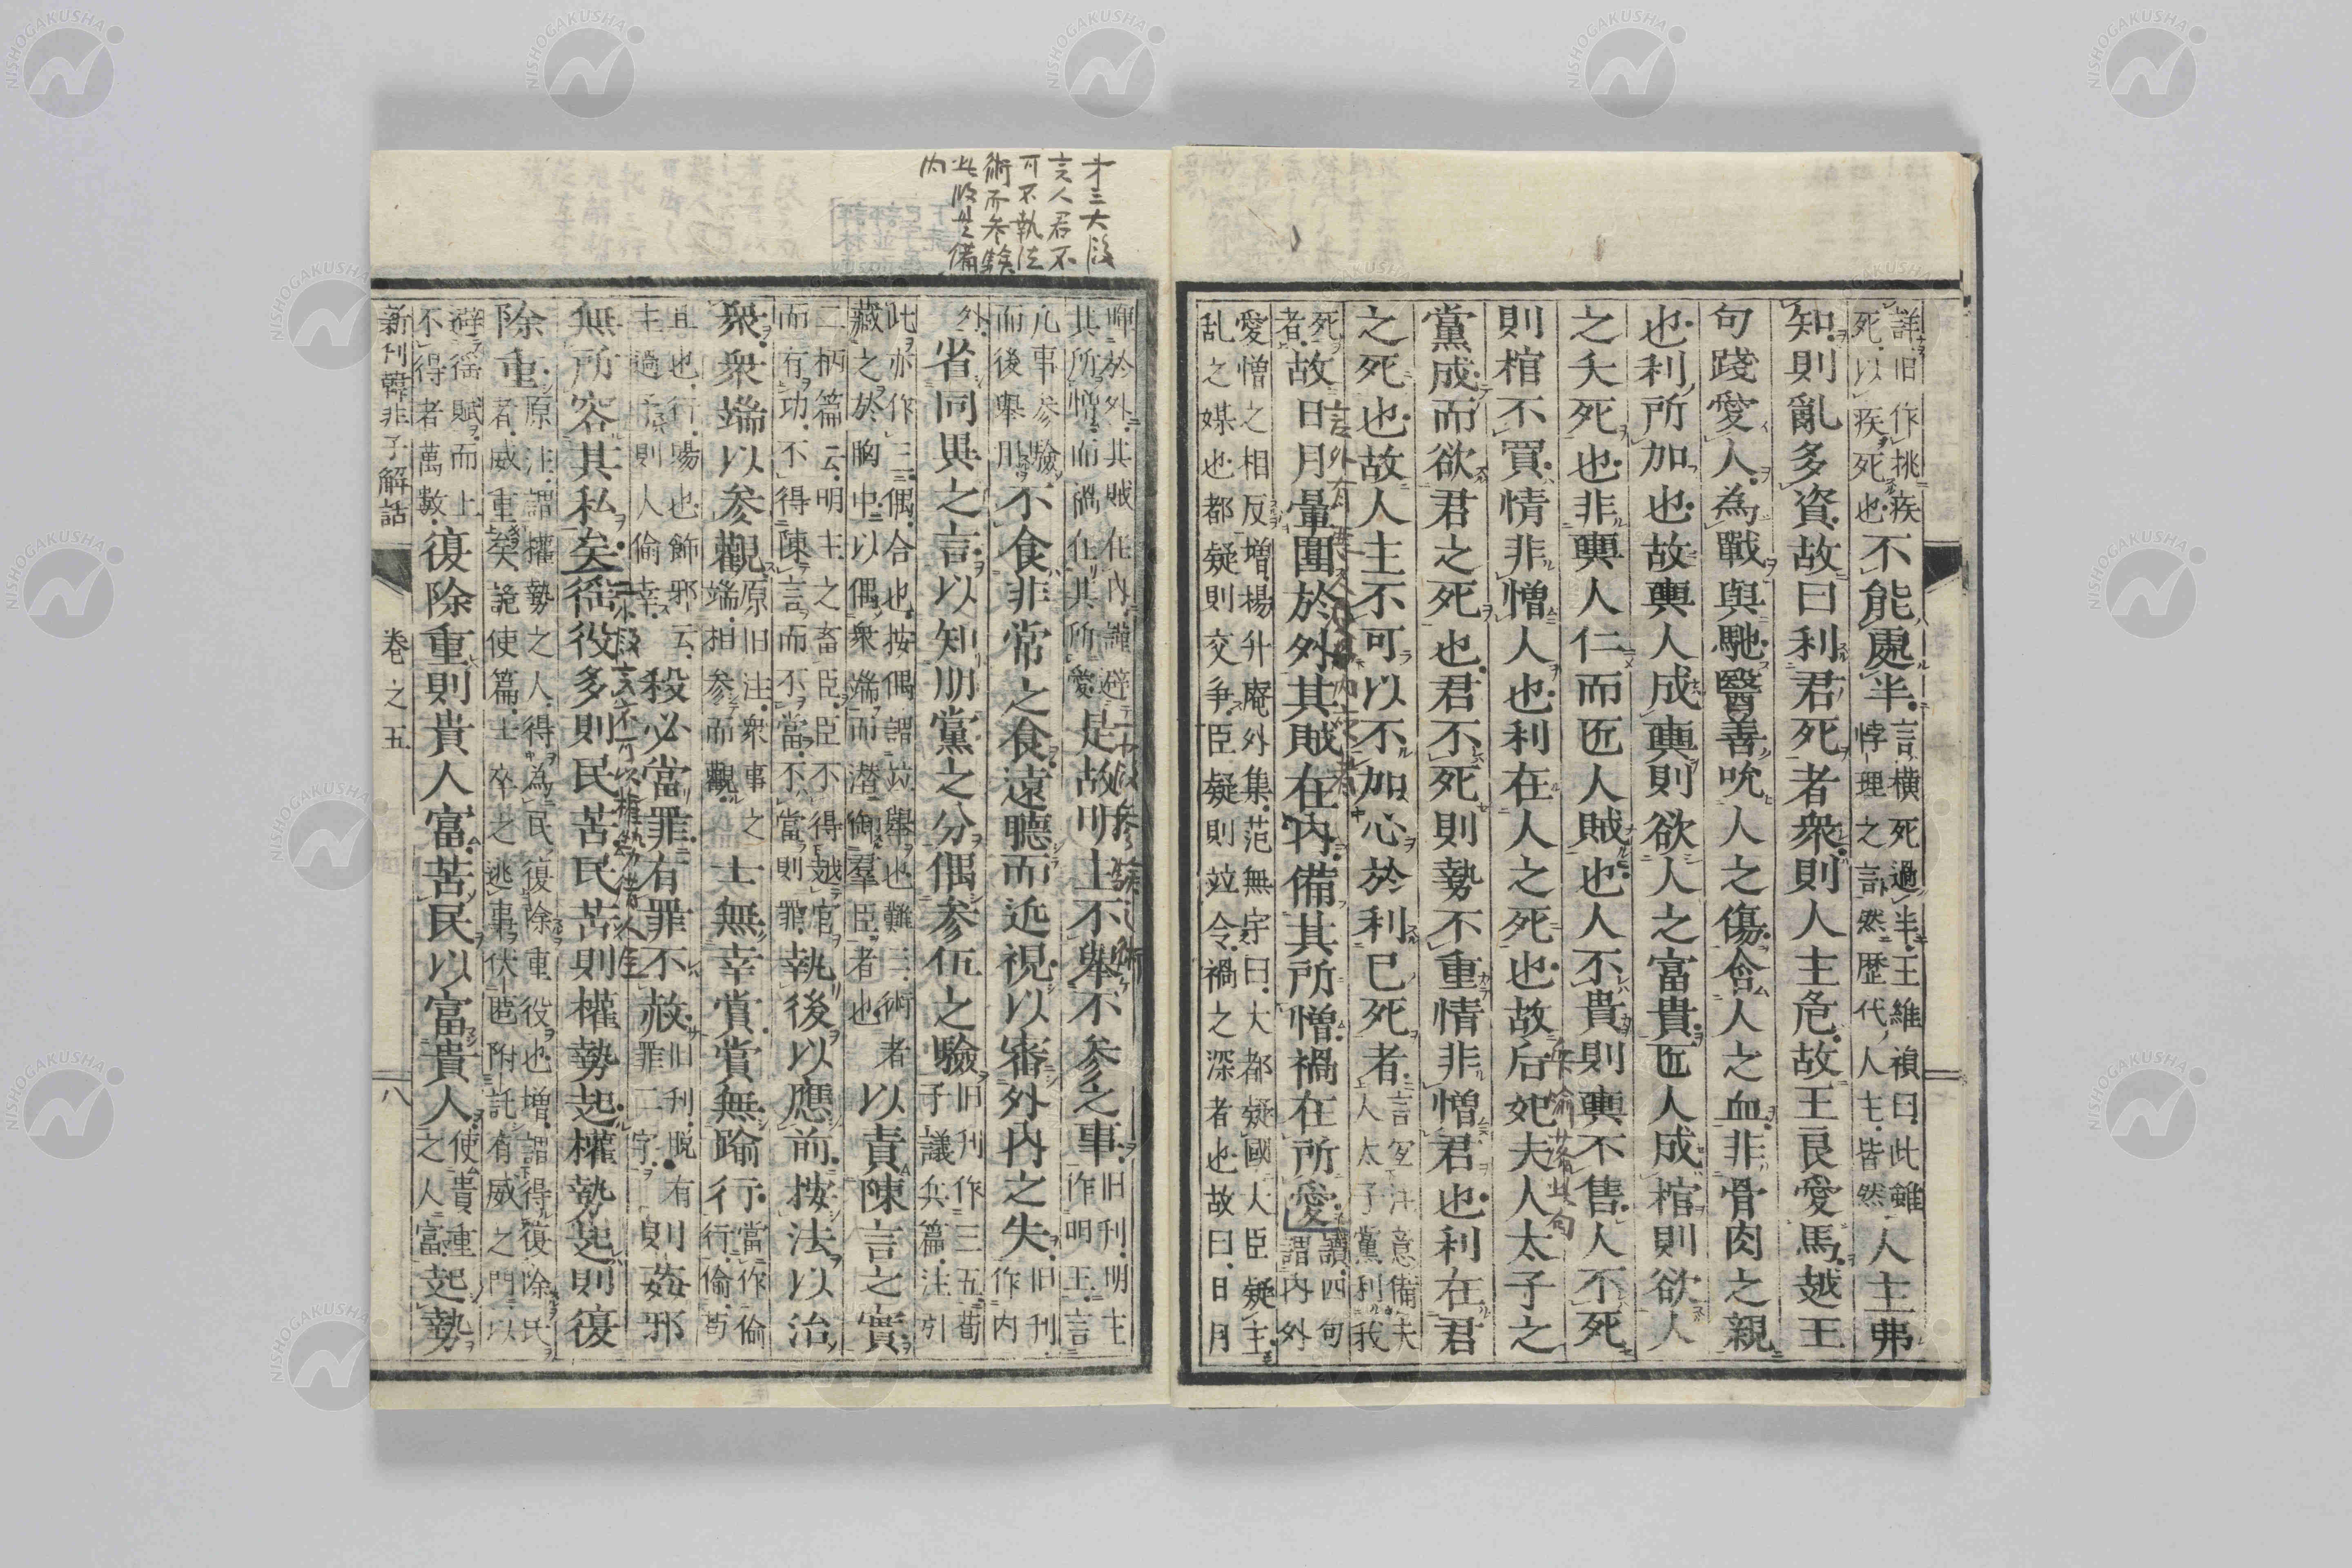 詳旧作挑疾
死以疾死也
不能處半
言橫死過半王維禎曰此雖
悖理之訃然歷代人主皆然
人主弗
知則亂多資故曰利君死者衆則人主危故王良愛馬越王
句踐愛人為戰與馳醫善吮人之傷含人之血非骨肉之親
也利所加也故輿人成輿則欲人之富貴匠人成棺則欲人
之夭死也非輿人仁而匠人賊也人不貴則輿不售人不死
則棺不買情非憎人也利在人之死也故后妃夫人太子之
黨成而欲君之死也君不死則勢不重情非憎君也利在君
之死也故人主不可以不加心於利己死者
言宜注意備夫
人太子黨利我
死
者
故日月暈圍於外其賊在內備其所憎禍在所愛
讀四句
謂內外
愛憎之相反增楊升庵外集范無宇曰大都疑國大臣疑主
乱之媒也都疑則交爭臣疑則竝令禍之深者也故曰日月
才三大段
言人君不
可不執法
術而參驗
內
暉於外其賊在內謹避
其所憎而禍在其所愛
是故明主不舉不參之事
旧刊明主
作明王言
凡事參驗
而後舉用
不食非常之食遠聽而近視以審外內之失
旧刊
作內
外
省同異之言以知朋黨之分偶參伍之驗
旧刊作三五荀
子議兵篇注引
此亦作三三偶合也按偶謂竝舉也難三術者
藏之於胸中以偶衆端而潛御羣臣者也
以責陳言之實
二柄篇云明主之畜臣臣不得越官
而有功不得陳言而不當不當則罪
執後以應前按法以治
衆衆端以參觀
原旧注衆事之
端相參而觀
士無幸賞賞無踰行
當作偷
行偷苟
且也行賜也飾邪云
主過予則人偷幸
殺必當罪有罪不赦
旧刊脫有
罪二字
則姦邪
無所容其私矣徭役多則民苦民苦則權勢起權勢起則復
除重
原注謂權勢之人得為民復除重役也增謂得復除民
者威重矣詭使篇士卒之逃事伏匿附託有威之門以
避徭賦而上
不得者萬數
復除重則貴人富苦民以富貴人
使貴重
之人富
起勢
新刊韓非子解詁
卷之五
八